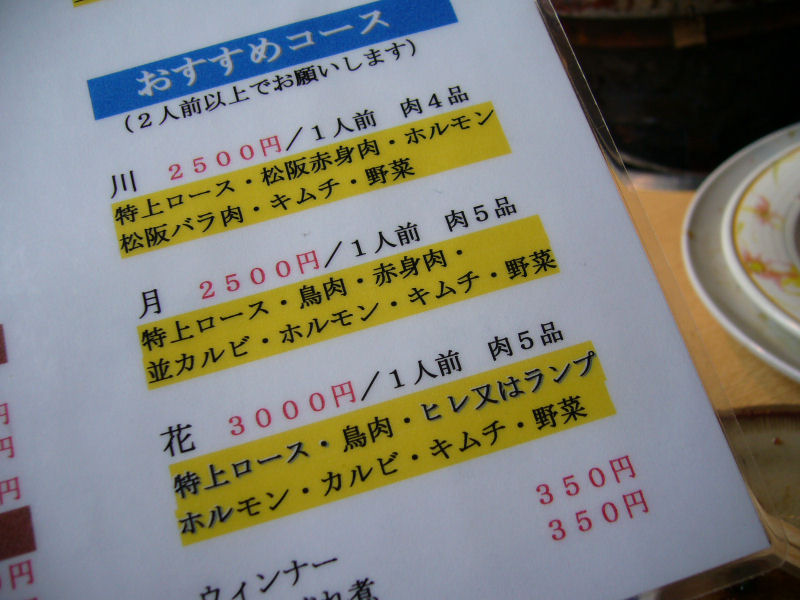 おすすめコース
(2人前以上でお願いします)
川 2500円/1人前 肉4品
特上ロース・松阪赤身肉・ホルモン
松阪バラ肉・キムチ・野菜
月 2500円/1人前 肉5品
特上ロース・鳥肉・赤身肉・
並カルビ・ホルモン・キムチ・野菜
花 3000円/1人前 肉5品
特上ロース・鳥肉・ヒレ又はランプ
ホルモン・カルビ・キムチ・野菜
350円
ウィンナー 350円
れ煮
円
円
円
円